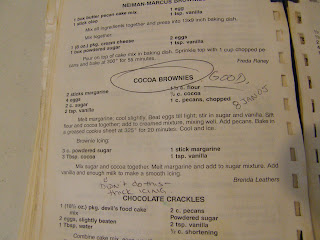 NEIMAN-MARCUS BROWNIES
1 box butter pecan cake mix 1 egg
1 stick oleo 1 tsp. vanilla
Mix all ingredients together and press into 13x9 inch baking dish.
Mix together:
1 (8 oz.) pkg. cream cheese 2 eggs
1 box powdered sugar 1 tsp. vanilla
Pour on top of cake mix in baking dish. Sprinkle top with 1 cup chopped pe-
cans and bake at 325° for 55 minutes.
Freda Raney
COCOA BROWNIES
GOOD,
2 sticks margarine 1½ c. flour
4 eggs ½ c. cocoa
2 c. sugar 1 c. pecans, chopped
2 tsp. vanilla
Melt margarine; cool slightly. Beat eggs till light; stir in sugar and vanilla. Sift
flour and cocoa together; add to creamed mixture, mixing well. Add pecans. Bake in
a greased cookie sheet at 325° for 20 minutes. Cool and ice.
Brownie Icing:
3 c. powdered sugar 1 stick margarine
3 Tbsp. cocoa 1 tsp. vanilla
Mix sugar and cocoa together. Melt margarine and add to sugar mixture. Add
vanilla and enough milk to make a smooth icing.
Brenda Leathers
Don't do this-
thick icing
CHOCOLATE CRACKLES
1 (18½ oz.) pkg. devil's food cake 2 c. pecans
mix Powdered sugar
2 eggs, slightly beaten 2 tsp. vanilla
1 Tbsp. water ½ c. shortening
Combine cake mix,